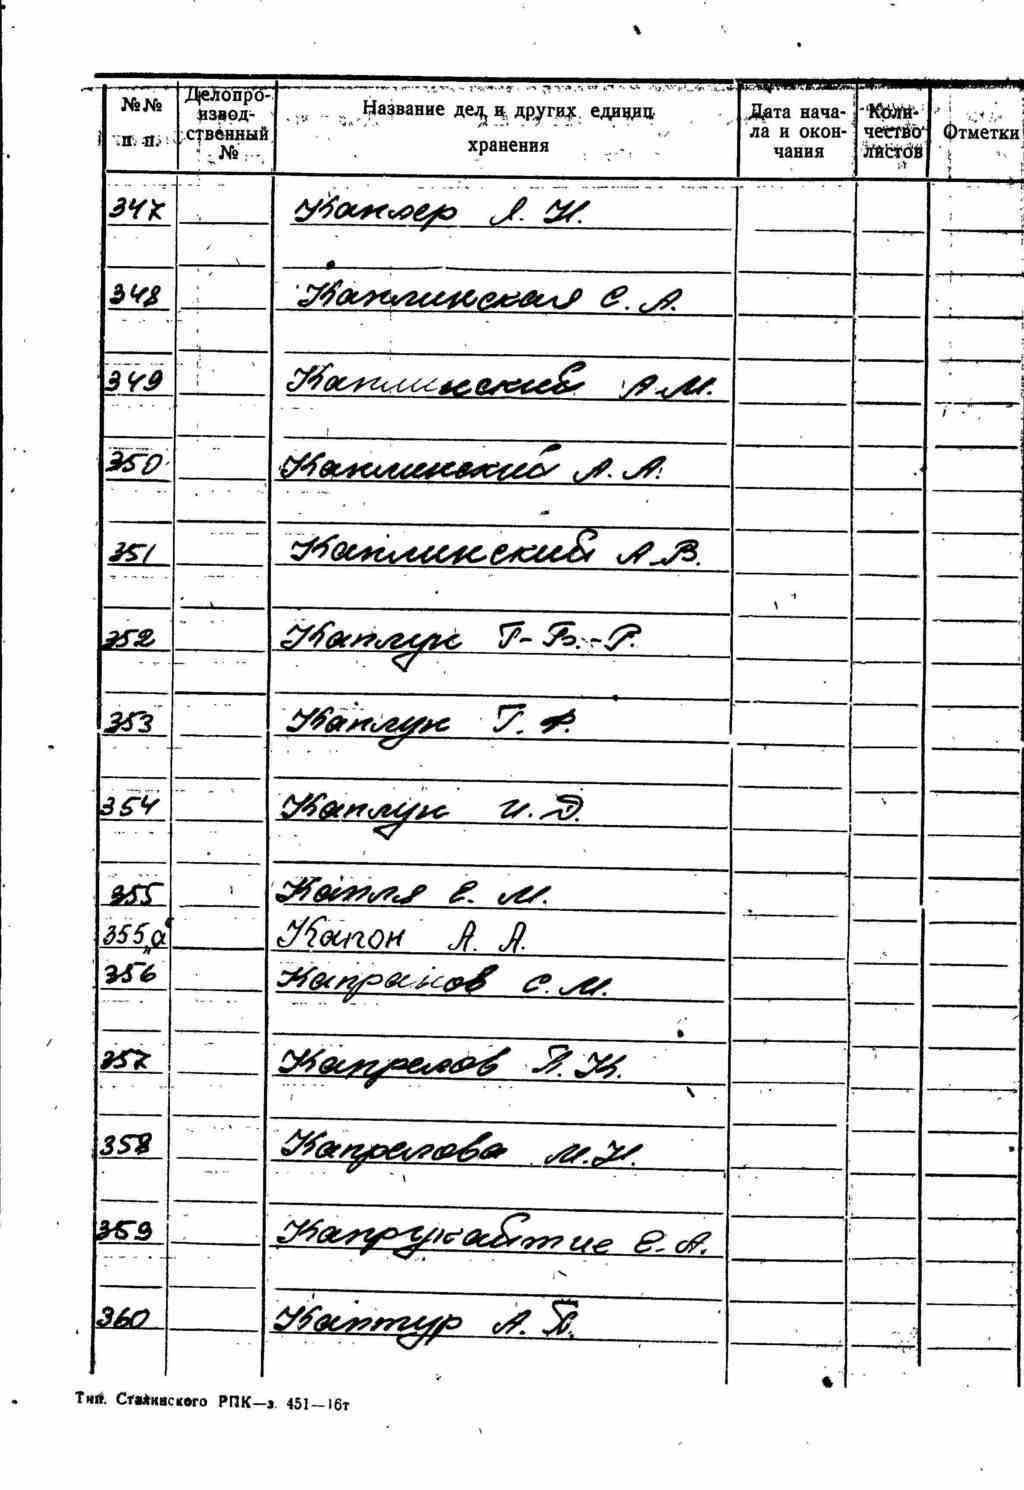 №№ п. п.
Делопро-
извод-
ственный
№
Название дел и других единиц
хранения
Дата нача-
ла и окон-
чания
Коли-
чество
листов
Отметки
347 Каплер Я. И.
348 Каплинская С. А.
349 Каплинский А. М.
350 Каплинский А. А.
351 Каплинский А. В.
352 Каплун Г-Б.-Р.
353 Каплун Г. Ф.
354 Каплун И. Д.
355 Капля Е. М.
355„а“ Капон А. А.
356 Капранов С. М.
357 Капрелов П. К.
358 Капрелова М. И.
359 Е. А.
360 Каптур А. П.
Тип. Сталинского РПК—з. 451—16т